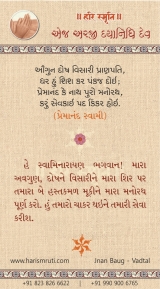 ॥ हरि स्मृति ॥
એજ અરજી દયાનિધિ દેવ
ઔગુન દોષ વિસારી પ્રાણપતિ,
ધર હું શિશ કર પંકજ દોઈ;
પ્રેમાનંદ કે નાથ પુરો મનોરથ,
કરું સેવકાઈ પદ કિંકર હોઈ.
(પ્રેમાનંદ સ્વામી)
હે સ્વામિનારાયણ ભગવાન! મારા
અવગુણ, દોષને વિસારીને મારા શિર પર
તમારા બે હસ્તકમળ મૂકીને મારા મનોરથ
પૂર્ણ કરો. હું તમારો ચાકર થઇને તમારી સેવા
કરીશ.
www.harismruti.com
Jnan Baug - Vadtal
+91 823 826 6622 | +91 990 900 6765